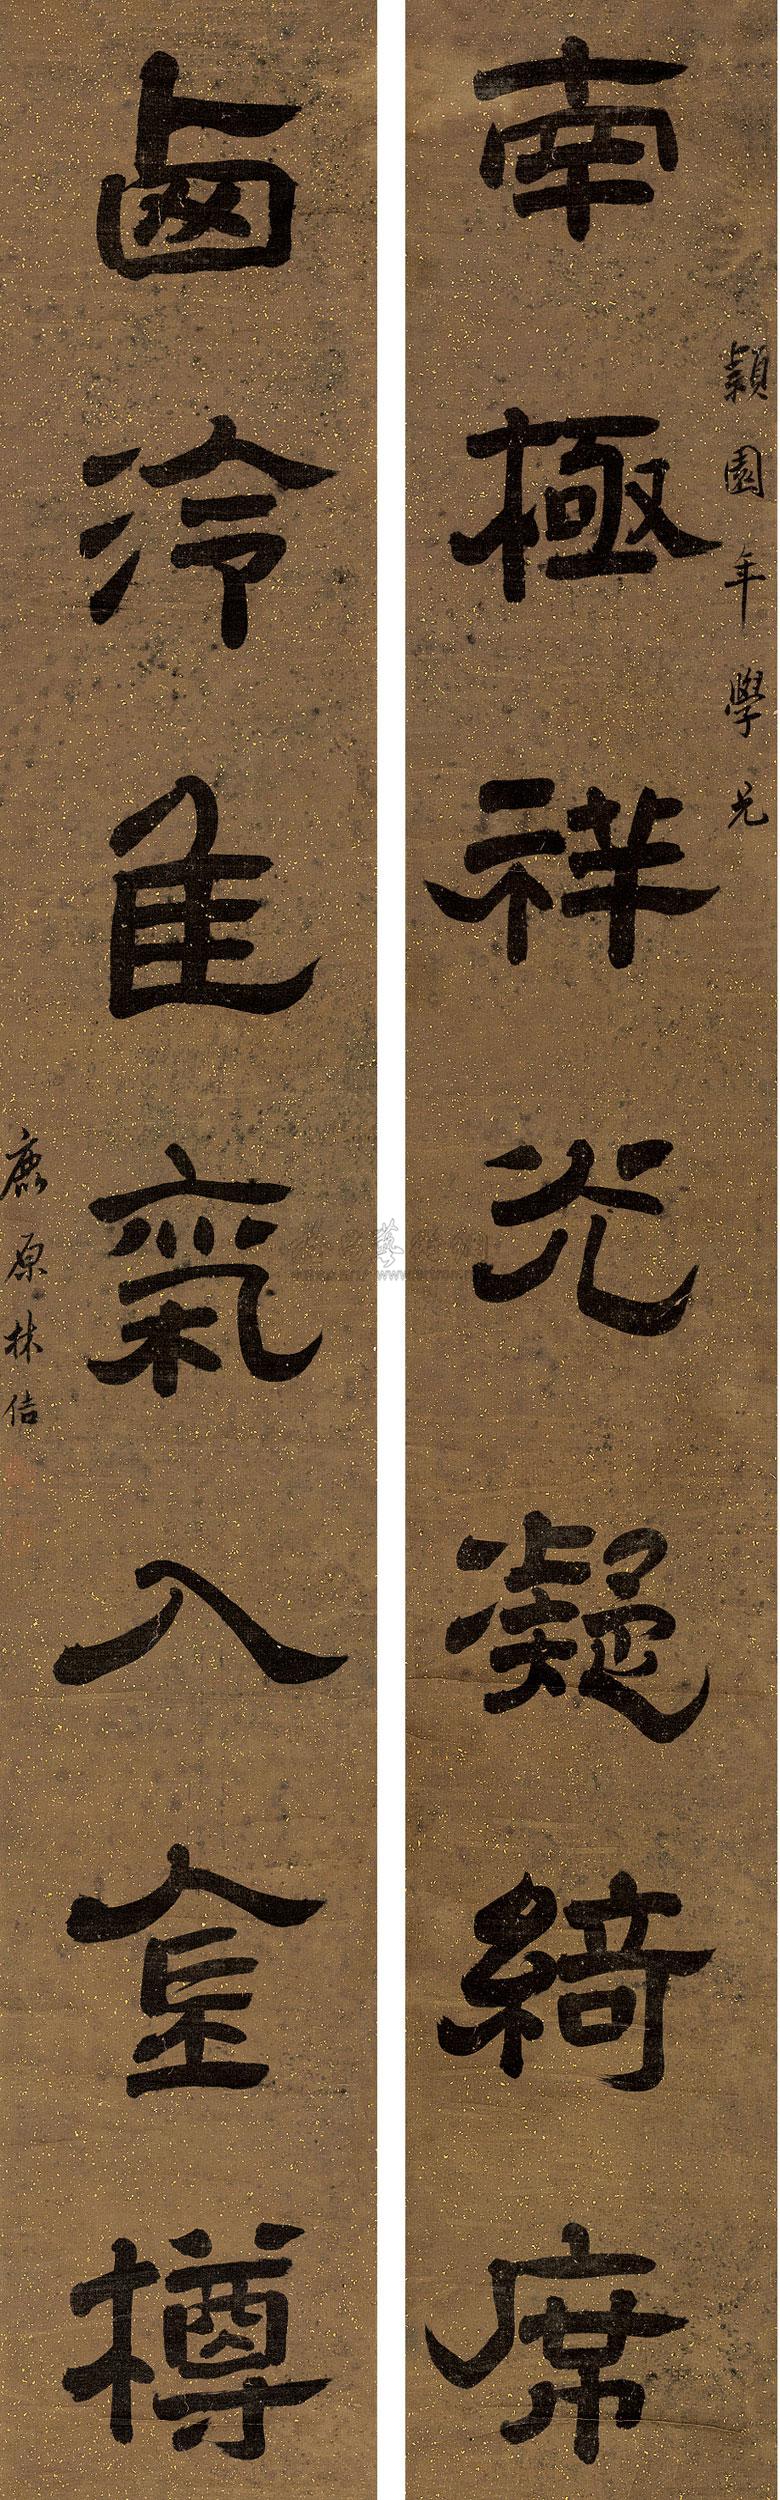 穎園年學兄
南極祥光凝綺席
卥冷佳氣入金樽
鹿原林佶